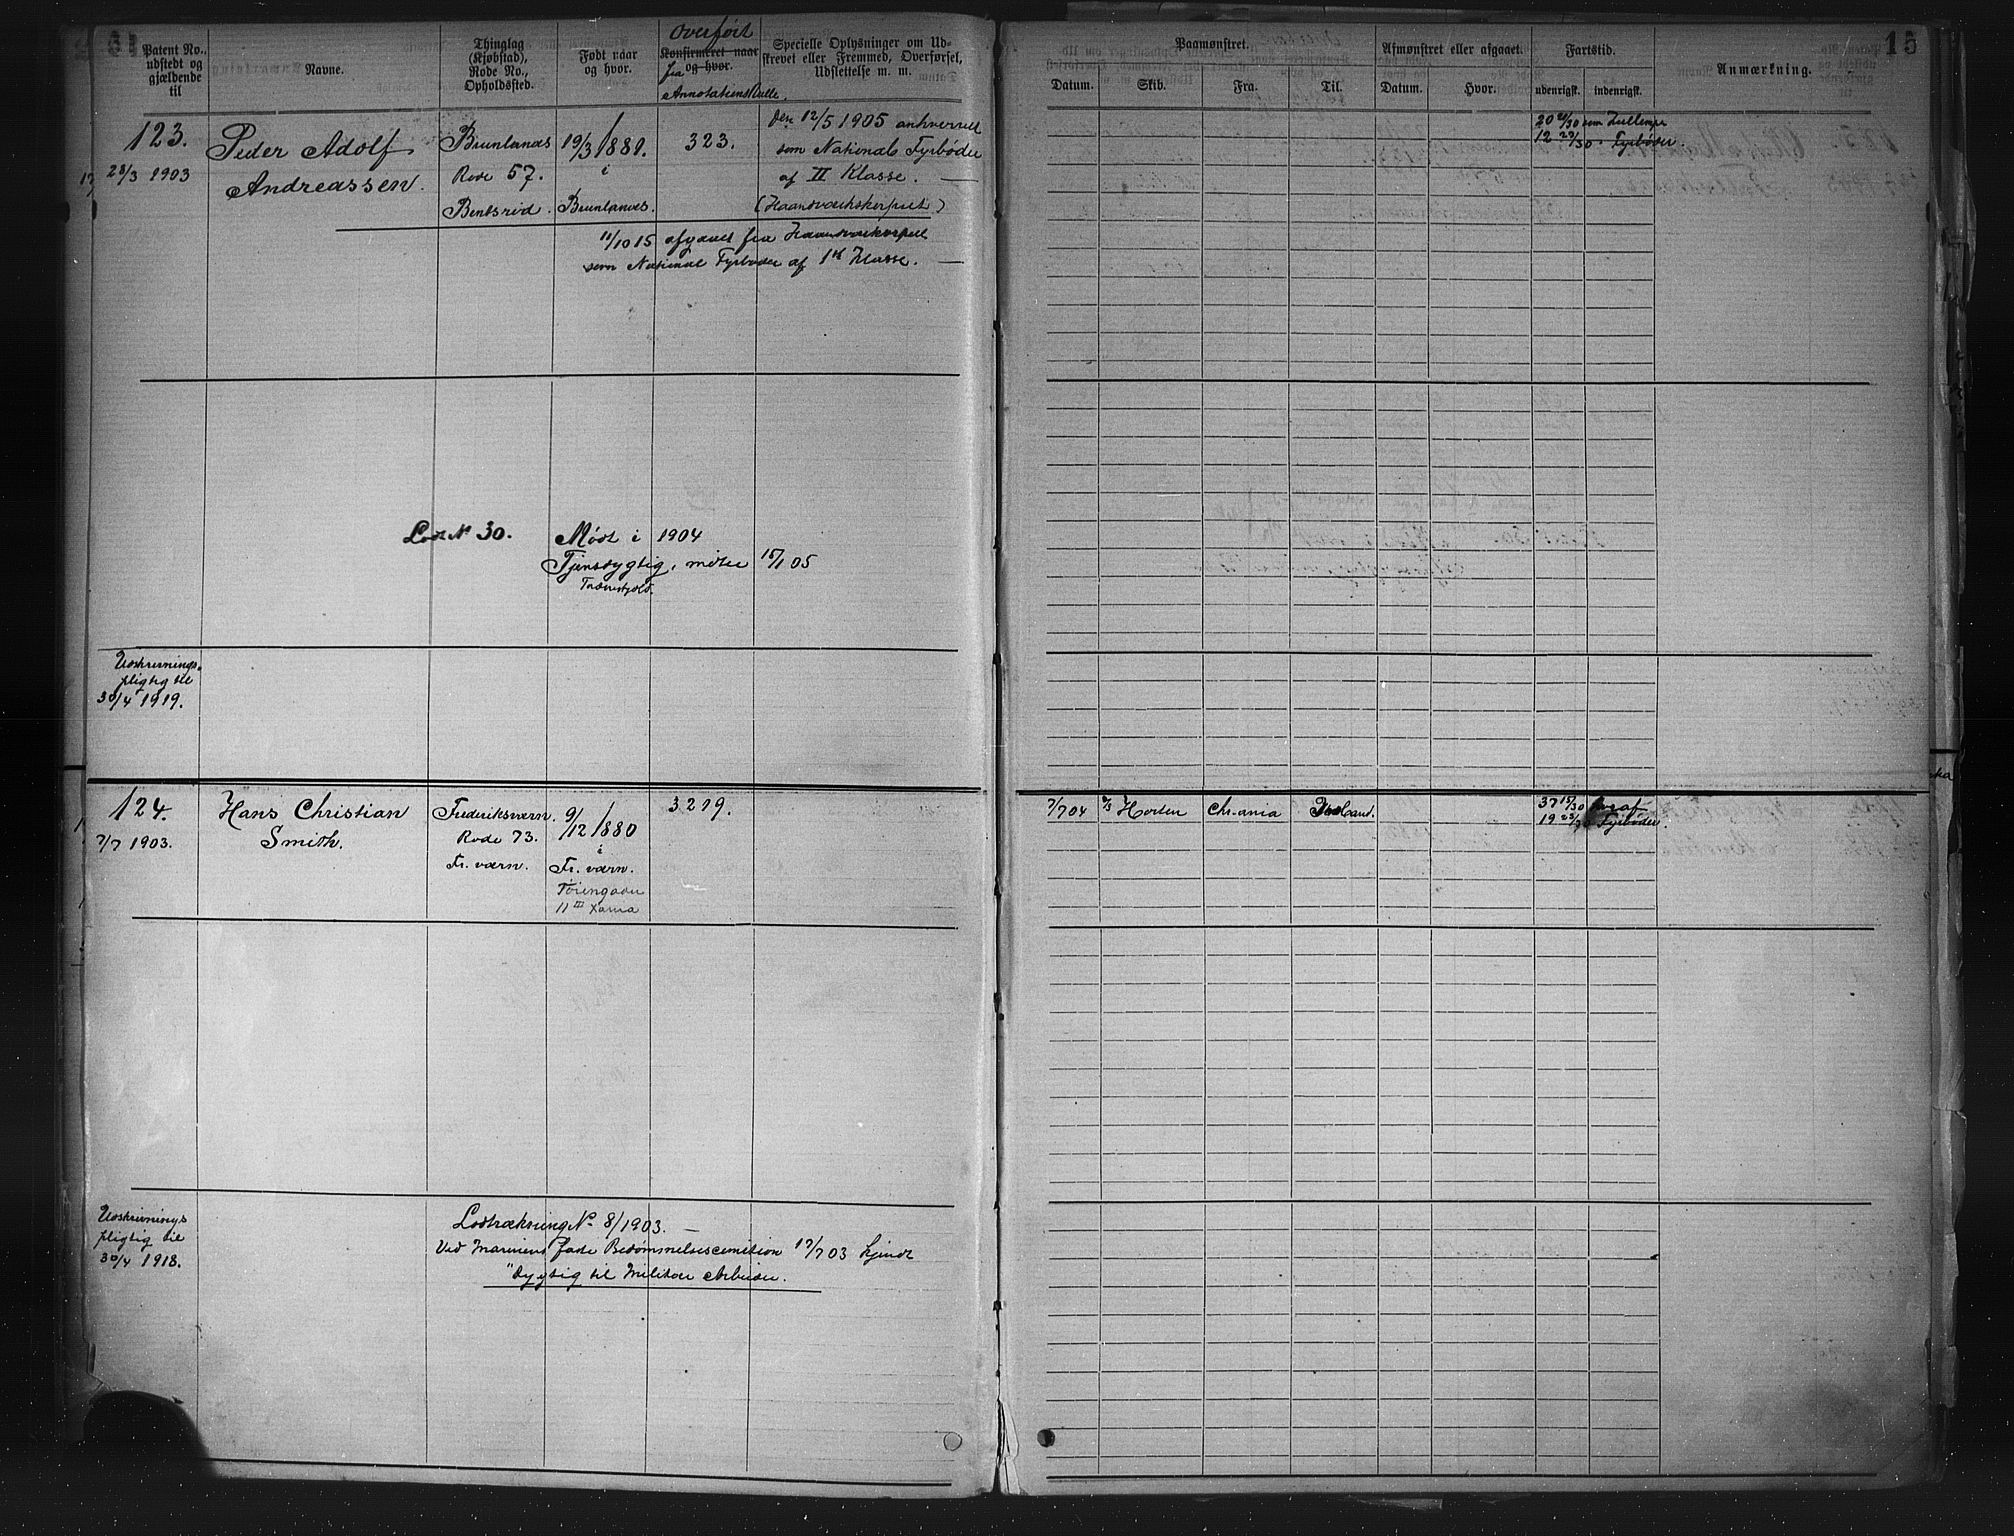 15
Patent No., udstedt og gjældende til
Navne.
Thinglag (Kjøbstad), Rode No., Opholdsted.
Født naar og hvor.
Overført
Konfirmeret naar og hvor.
fra
Annotations Rulle.
Specielle Oplysninger om Udskrevet eller Fremmed, Overførsel, Udslettelse m. m.
Paamønstret.
Afmønstret eller afgaaet.
Fartstid.
Anmærkning.
Datum.
Skib.
Fra.
Til.
Datum.
Hvor.
udenrigsk.
indenrigsk.
123.
28/3 1903
Peder Adolf
Andreassen.
Brunlanes
Rode 57.
Bentsrød.
19/3 1881.
i
Brunlanes.
323.
Den 12/5 1905
som National Fyrbøder
af II Klasse.
(Haandværkskorpset)
11/10 15 afgaaet fra Haandværkorpset
som National Fyrbøder af 1st Klasse.
20 21/30 som
12 23/30 " Fyrbøder.
Lod N 30.
Mødt i 1904
Tjenstdygtig, møter 15/1 05
Udskrivnings-
pligtig til
30/4 1919.
124.
7/7 1903.
Hans Christian
Smith.
Frederiksværn.
Rode 73.
Fr. værn.
9/12 1880
i
Fr. værn.
Tøiengaden
11 III Xania
3219.
7/7 04
Horten
Chr.ania
37 17/30
19 23/30 Fyrbøder.
Udskrivnings
pligtig til
30/4 1918.
Lodtrækning No 8/1903.
Ved Marinens faste Bedømmelsescomition 17/7 03 kjendt
"Dygtig til Militær Arbeider.